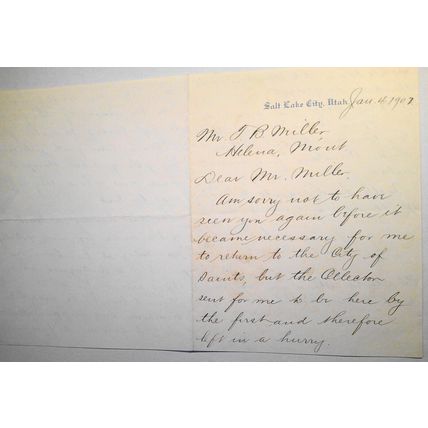 Salt Lake City, Utah, Jan. 4, 1907
Mr. T B Miller
Helena, Mont
Dear Mr. Miller.
Am sorry not to have
seen you again before it
became necessary for me
to return to the City of
Saints, but the Collector
sent for me to be here by
the first and therefore
left in a hurry.